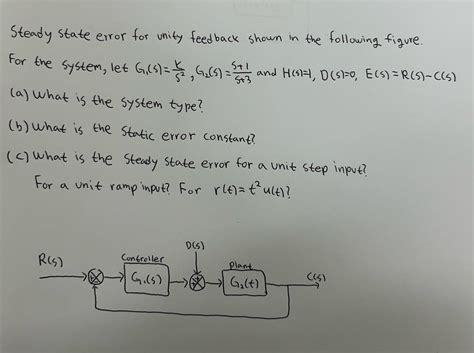 Steady state error for unity feedback shown in the following figure.
For the system, let G₁(s)=K/s², G₂(s)=(s+1)/(s+3) and H(s)=1, D(s)=0, E(s)=R(s)-C(s)
(a) What is the system type?
(b) What is the static error constant?
(c) What is the steady state error for a unit step input?
For a unit ramp input? For r(t)=t²u(t)?
D(s)
R(s)
Controller
Plant
C(s)
G₁(s)
G₂(t)